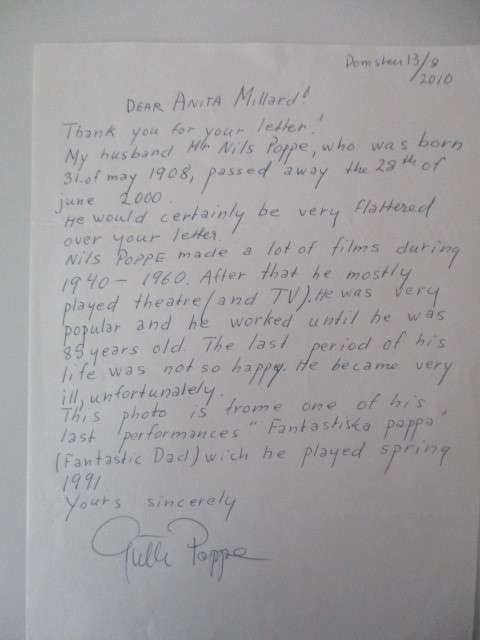 Domsten 13/8
/2010
DEAR ANITA Millard!
Thank you for your letter!
My husband Mr Nils Poppe, who was born
31.of may 1908, passed away the 28th of
june 2000.
He would certainly be very flattered
over your letter.
NILS POPPE made a lot of films during
1940 – 1960. After that he mostly
played theatre (and TV). He was very
popular and he worked until he was
85 years old. The last period of his
life was not so happy. He became very
ill, unfortunately.
This photo is frome one of his
last performances "Fantastiska pappa"
(Fantastic Dad) wich he played spring
1991
Yours sincerely
Gulli Poppe